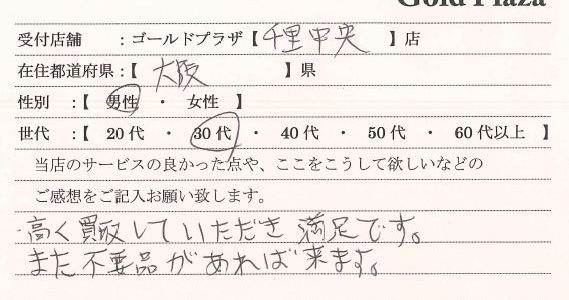 Gold Plaza
受付店舗 :ゴールドプラザ【千里中央 】店
在住都道府県:【 大阪 】県
性別 :【 男性 ・ 女性 】
世代 :【 20代 ・ 30代 ・ 40代 ・ 50代 ・ 60代以上 】
当店のサービスの良かった点や、ここをこうして欲しいなどの
ご感想をご記入お願い致します。
高く買取していただき満足です。
また不要品があれば来ます。